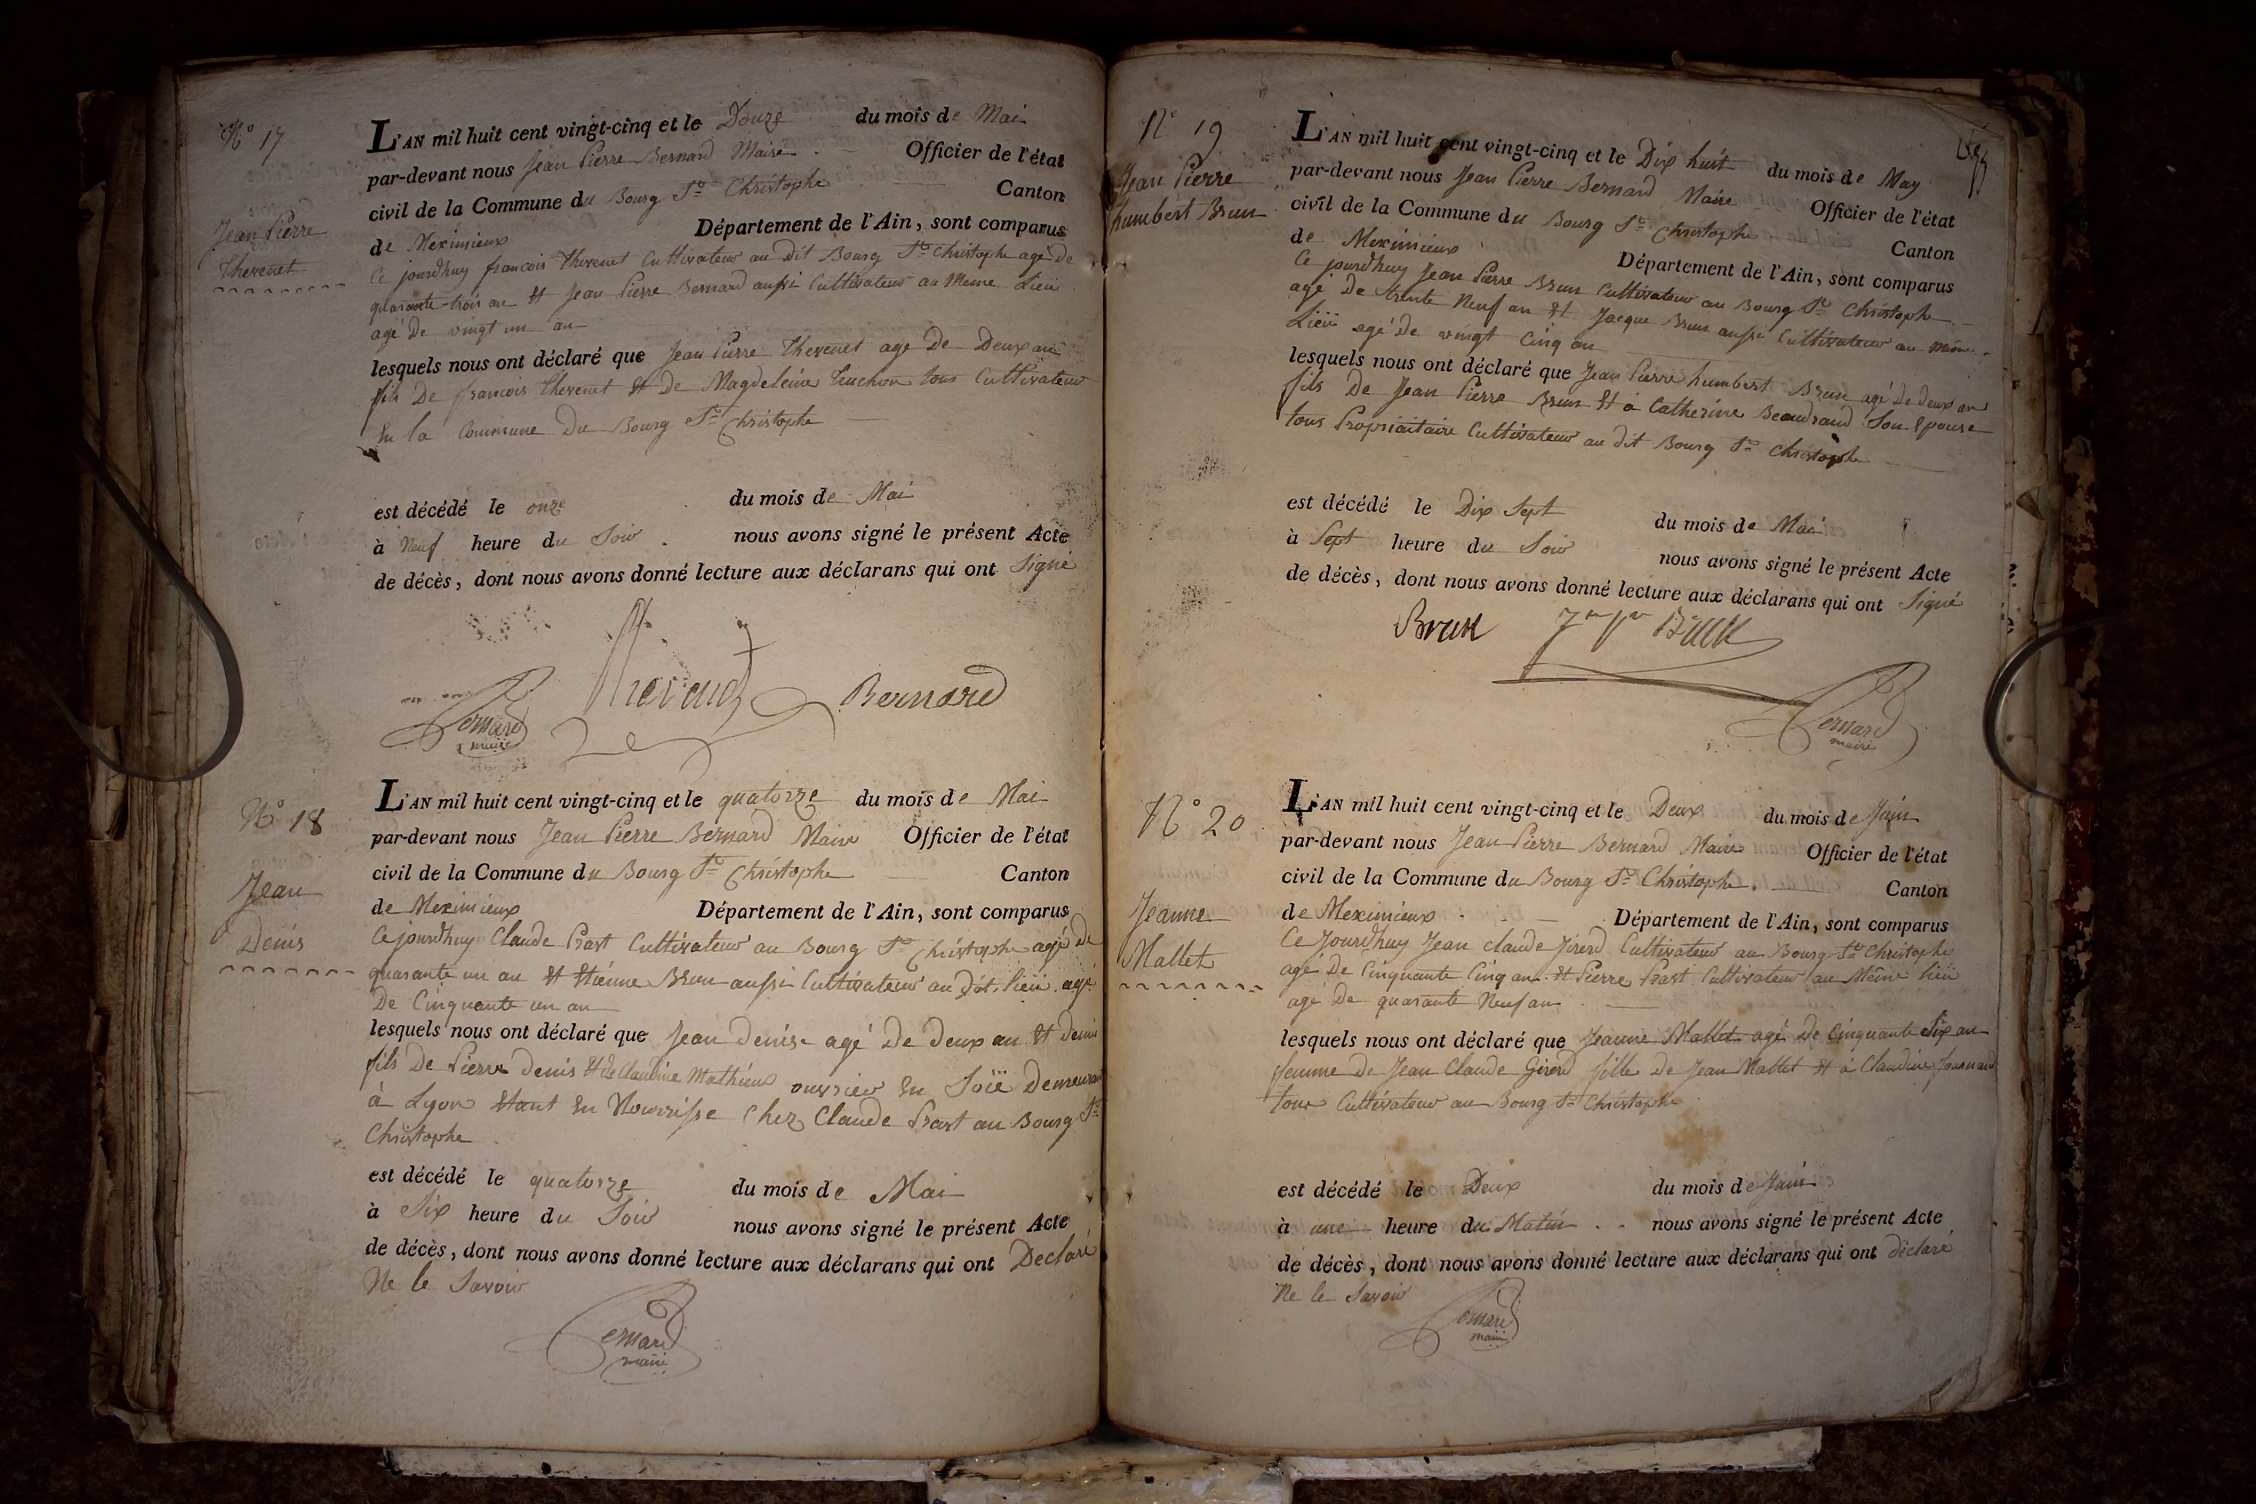 N° 17
Jean Pierre
Thevenet
L'AN mil huit cent vingt-cinq et le Douze du mois de Mai
par-devant nous Jean Pierre Bernard Maire Officier de l'état
civil de la Commune du Bourg St Christophe Canton
de Meximieux Département de l'Ain, sont comparus
Ce jourdhuy francois Thevenet Cultivateur au dit Bourg St Christophe agé de
quarante-trois an Et Jean Pierre Bernard aussi Cultivateur au Meme Lieu
agé De vingt un an
lesquels nous ont déclaré que Jean Pierre Thevenet age De Deux an
fils De francois Thevenet Et De Magdeleine tous Cultivateur
En la Commune Du Bourg St Christophe
est décédé le onze du mois de Mai
à Neuf heure du Soir nous avons signé le présent Acte
de décès, dont nous avons donné lecture aux déclarans qui ont Signé
Thevenet Bernard
Bernard
maire
N° 18
Jean
Denis
L'AN mil huit cent vingt-cinq et le quatorze du mois de Mai
par-devant nous Jean Pierre Bernard Maire Officier de l'état
civil de la Commune du Bourg St Christophe Canton
de Meximieux Département de l'Ain, sont comparus
Ce jourdhuy Claude Prast Cultivateur au Bourg St Christophe agé de
quarante un an Et Etienne Brun aussi Cultivateur au Dit lieu agé
De Cinquante un an
lesquels nous ont déclaré que Jean denis agé De deux an Et demi
fils De Pierre Denis Et de Claudine Mathieux ouvrier En Soïë Demeurant
à Lyon Etant En Nourrisse Chez Claude Prast au Bourg St
Christophe
est décédé le quatorze du mois de Mai
à Six heure du Soir nous avons signé le présent Acte
de décès, dont nous avons donné lecture aux déclarans qui ont Declaré
Ne le Savoir
Bernard
maire
N° 19
Jean Pierre
humbert Brun
L'AN mil huit cent vingt-cinq et le Dix huit du mois de May
par-devant nous Jean Pierre Bernard Maire Officier de l'état
civil de la Commune du Bourg St Christophe Canton
de Meximieux Département de l'Ain, sont comparus
Ce jourdhuy Jean Pierre Brun Cultivateur au Bourg St Christophe
agé De trente Neuf an Et Jacque Brun aussi Cultivateur au même
Lieü agé de vingt Cinq an
lesquels nous ont déclaré que Jean Pierre humbert Brun agé de deux an
fils De Jean Pierre Brun Et à Catherine Beaudrand Son Epouse
tous Propriaitaire Cultivateur au dit Bourg St Christophe
est décédé le Dix Sept du mois de Mai
à Sept heure du Soir nous avons signé le présent Acte
de décès, dont nous avons donné lecture aux déclarans qui ont Signé
Brun Brun
Bernard
maire
N° 20
Jeanne
Mallet
L'AN mil huit cent vingt-cinq et le Deux du mois de Juin
par-devant nous Jean Pierre Bernard Maire Officier de l'état
civil de la Commune du Bourg St Christophe Canton
de Meximieux Département de l'Ain, sont comparus
Ce Jourdhuy Jean claude Jirerd Cultivateur au Bourg St Christophe
agé De Cinquante Cinq an Et Pierre Prast Cultivateur au Même lieü
agé De quarante Neuf an
lesquels nous ont déclaré que Jeanne Mallet agé De Cinquante Six an
femme de Jean Claude Girerd fille de Jean Mallet Et à Claudine
tous Cultivateur au Bourg St Christophe
est décédé le Deux du mois de Juin
à une heure du Matin nous avons signé le présent Acte
de décès, dont nous avons donné lecture aux déclarans qui ont déclaré
Ne le Savoir
Bernard
maire